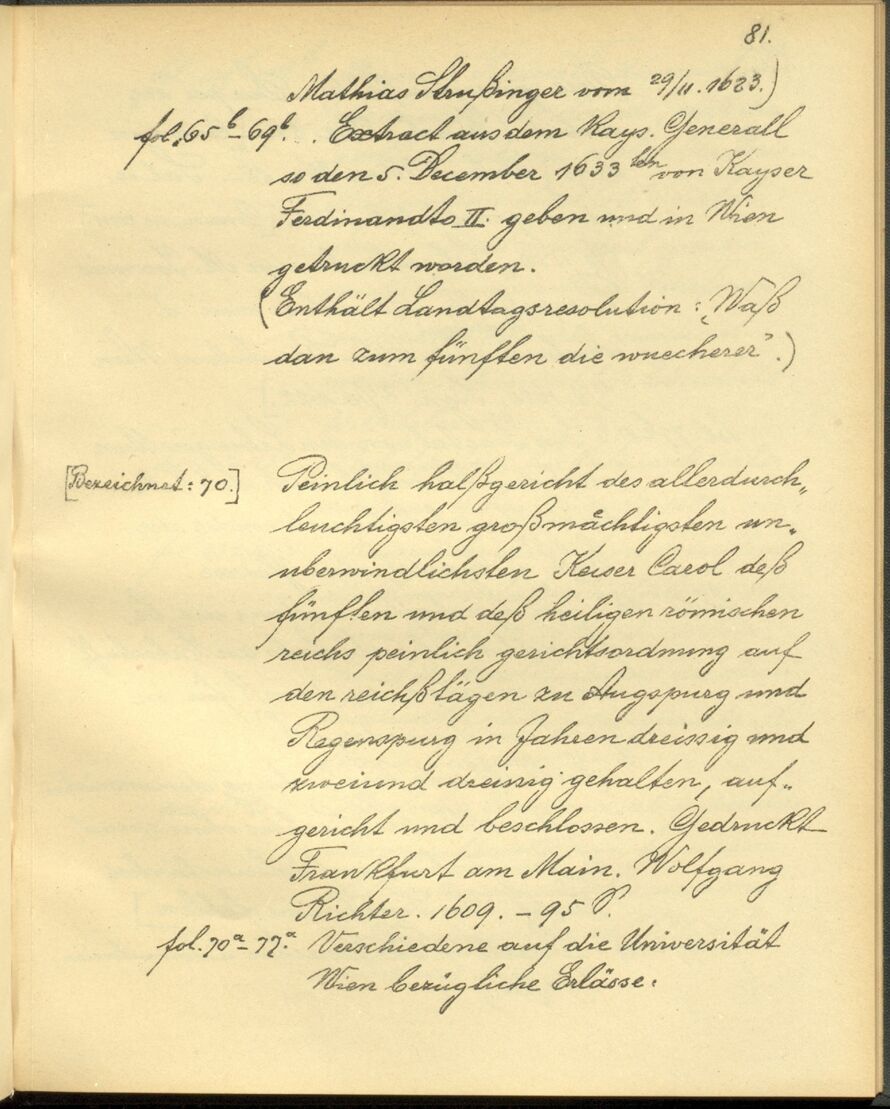 81.
Mathias Strußinger vom 29/11. 1623.)
fol. 65b - 69b. Extract aus dem Kays. Generall
so den 5. December 1633ten von Kayser
Ferdinandto II. geben und in Wien
getruckt worden.
(Enthält Landtagsresolution: „Waß
dan zum fünften die wuecherer".)
[Bezeichnet: 70.] Peinlich halßgericht des allerdurch„
leuchtigsten großmächtigsten un„
uberwindlichsten Keiser Carol deß
fünften und deß heiligen römischen
reichs peinlich gerichtsordnung auf
den reichßtägen zu Augspurg und
Regenspurg in Jahren dreissig und
zweiund dreissig gehalten, auf„
gericht und beschlossen. Gedruckt
Frankfurt am Main. Wolfgang
Richter. 1609. - 95 S.
fol. 70a - 77a. Verschiedene auf die Universität
Wien bezügliche Erlässe: